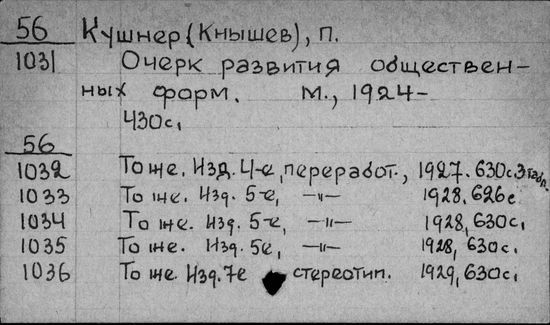 56 Кушнер (Кнышев), П.
1031 Очерк развития обществен-
ных форм. М., 1924-
430с,
56
1032 То же. Изд. 4-е, переработ., 1927. 630с. 3 табл.
1033 То же. Изд. 5-е, —"— 1928, 626с
1034 То же. Изд. 5-е, —"— 1928, 630с,
1035 То же. Изд. 5е, —"— 1928, 630с.
1036 То же. Изд. 7е стереотип. 1929, 630с,